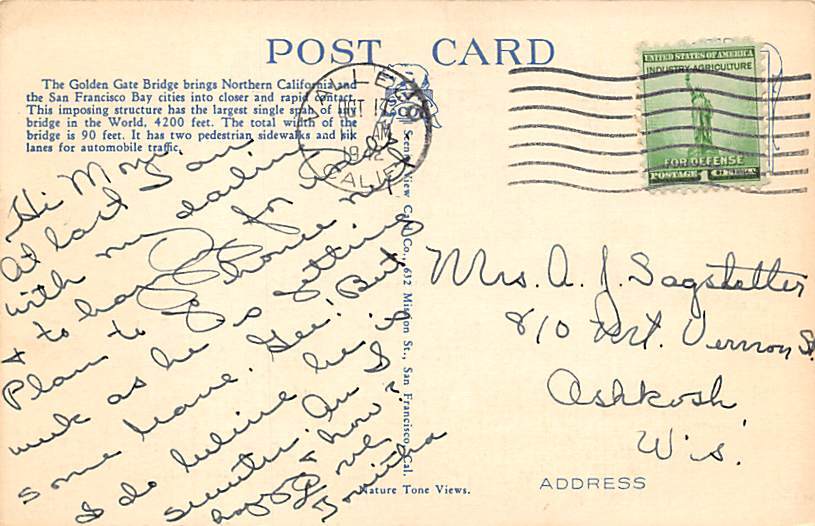 POST CARD
The Golden Gate Bridge brings Northern California and
the San Francisco Bay cities into closer and rapid contact.
This imposing structure has the largest single span of any
bridge in the World, 4200 feet. The total width of the
bridge is 90 feet. It has two pedestrian sidewalks and six
lanes for automobile traffic.
VALLEJO
OCT 17
AM
1942
CALIF.
UNITED STATES OF AMERICA
INDUSTRY AGRICULTURE
FOR DEFENSE
POSTAGE 1
Hi Mom,
At last I am
with my darling
& to
Plan to go home next
week as he is getting
some leave. Gee! But
I do believe he is
sweeter. Am I
happy & how?
Love
Scenic View Card Co., 632 Mission St., San Francisco, Cal.
Mrs. A. J. Sagstetter
810 Mt. Vernon St
Oshkosh
Wis.
Nature Tone Views.
ADDRESS